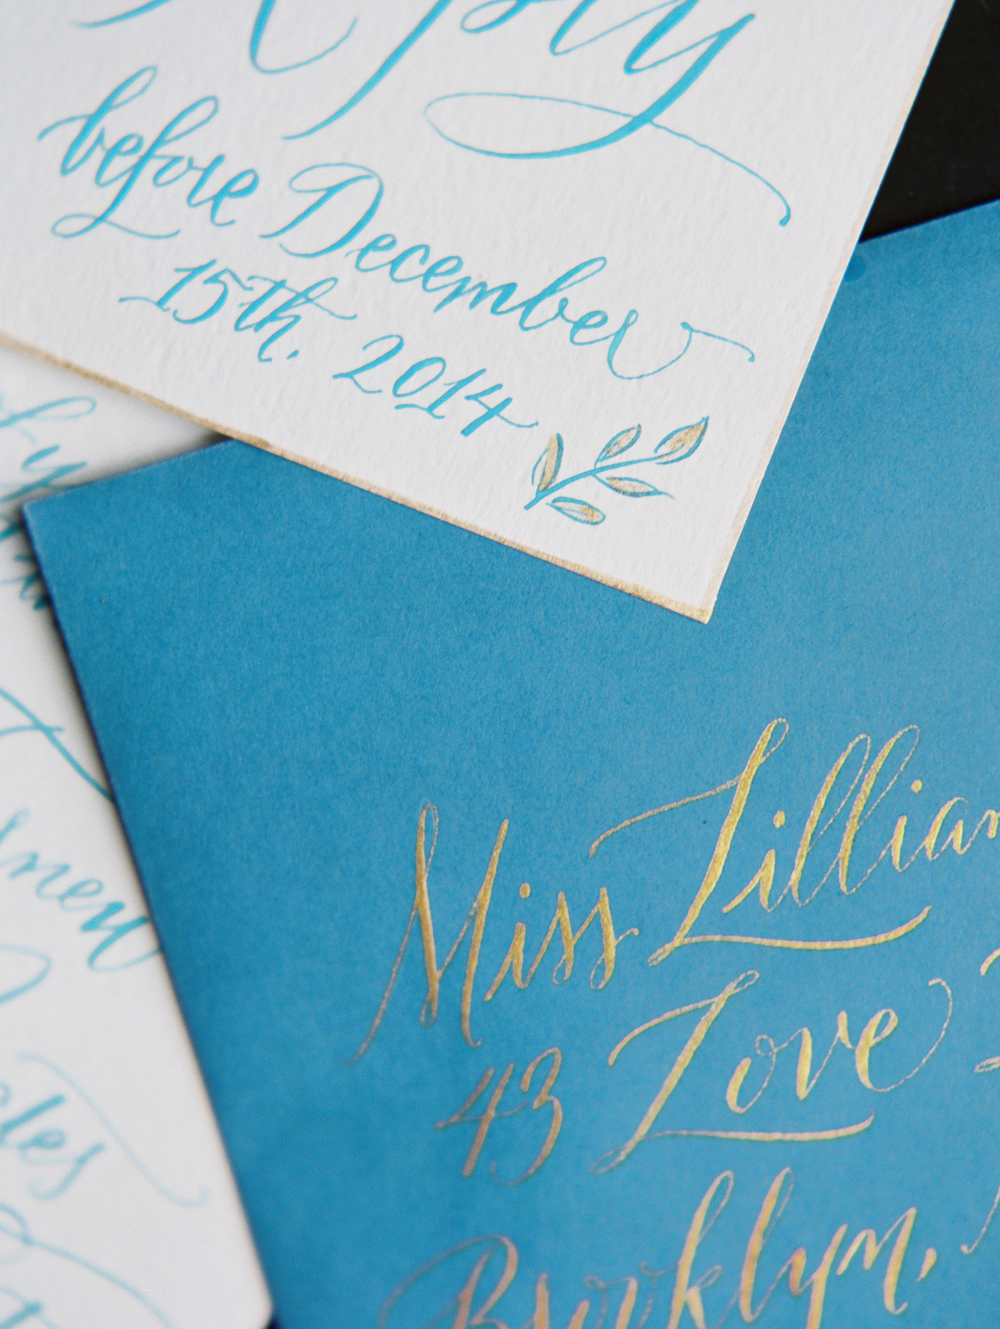 Reply
before December
15th, 2014
Miss Lillian
43 Love
Brooklyn,